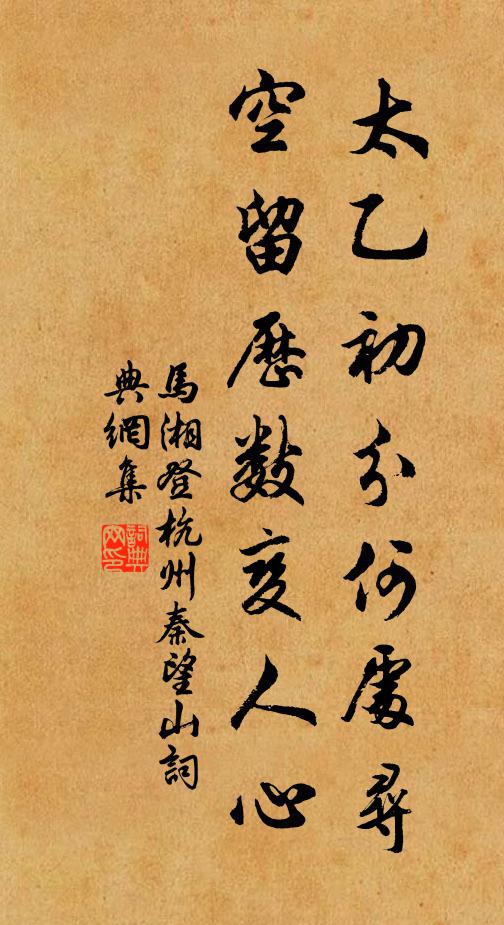 太乙初分何處尋
空留歷數變人心
馬湘登杭州秦望山詞
典網集
詞典網印